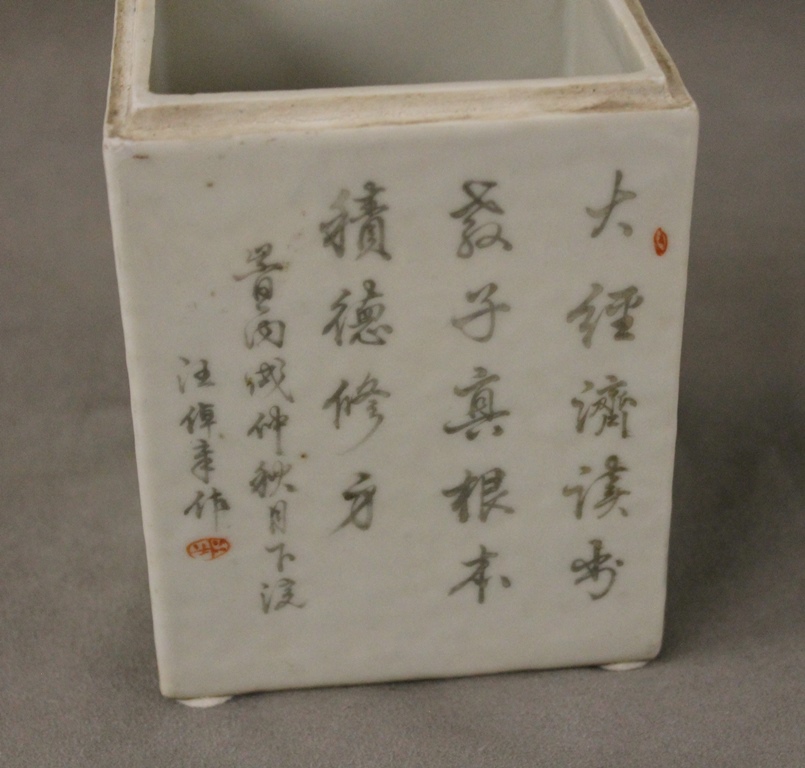 大經濟讀書
教子真根本
積德修身
旹丙戌仲秋月下浣
汪倬章作